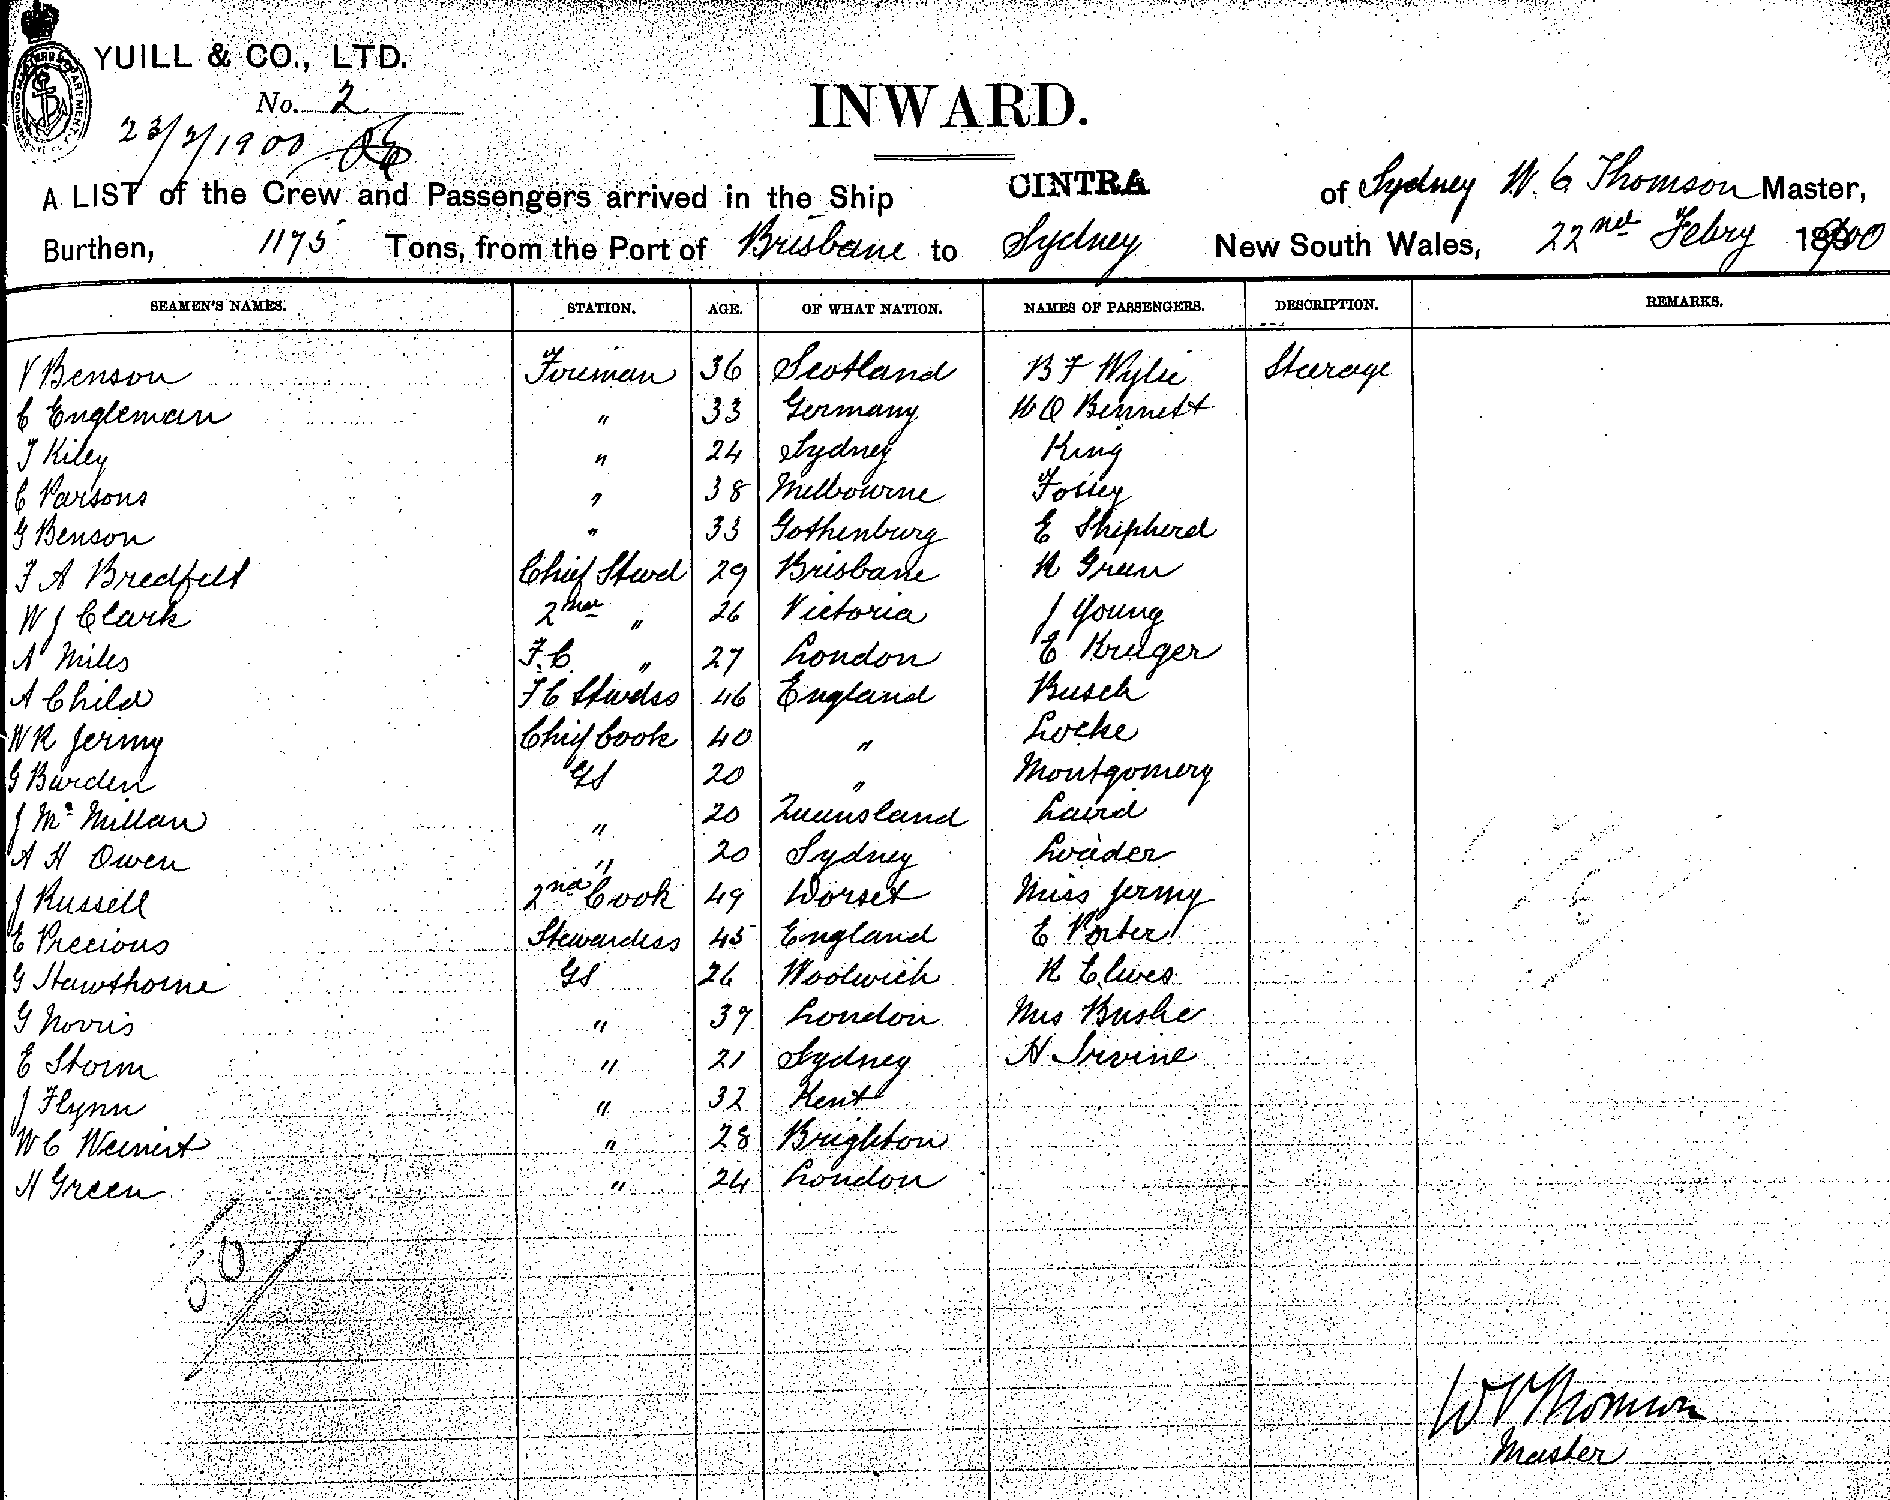 YUILL & CO., LTD.
No. 2
INWARD.
23/2/1900
A LIST of the Crew and Passengers arrived in the Ship CINTRA of Sydney W. C Thomson Master,
Burthen, 1175 Tons, from the Port of Brisbane to Sydney New South Wales, 22nd Febry 1900
SEAMEN'S NAMES. STATION. AGE. OF WHAT NATION. NAMES OF PASSENGERS. DESCRIPTION. REMARKS.
V Benson Fireman 36 Scotland B F Wylie Steerage
C Engleman " 33 Germany W Q Bennett
T Kiley " 24 Sydney King
C Parsons " 38 Melbourne Fossey
G Benson " 33 Gothenburg E Shepherd
F A Bredfelt Chief Stwd 29 Brisbane R Green
W J Clark 2nd " 26 Victoria J Young
A Miles F.C. " 27 London E Kruger
A Child F C Stwdss 46 England Busch
W R Jermy Chief Cook 40 " Locke
G Burden GS 20 " Montgomery
J Mc Millan " 20 Queensland Laird
A H Owen " 20 Sydney Loader
J Russell 2nd Cook 49 Dorset Miss Jermy
E Precious Stewardess 45 England E Porter
G Hawthorne GS 26 Woolwich R Elwes
G Norris " 37 London Mrs Bushe
E Storm " 21 Sydney H Irvine
J Flynn " 32 Kent
W C Weinert " 28 Brighton
H Green " 24 London
50
W C Thomson
Master